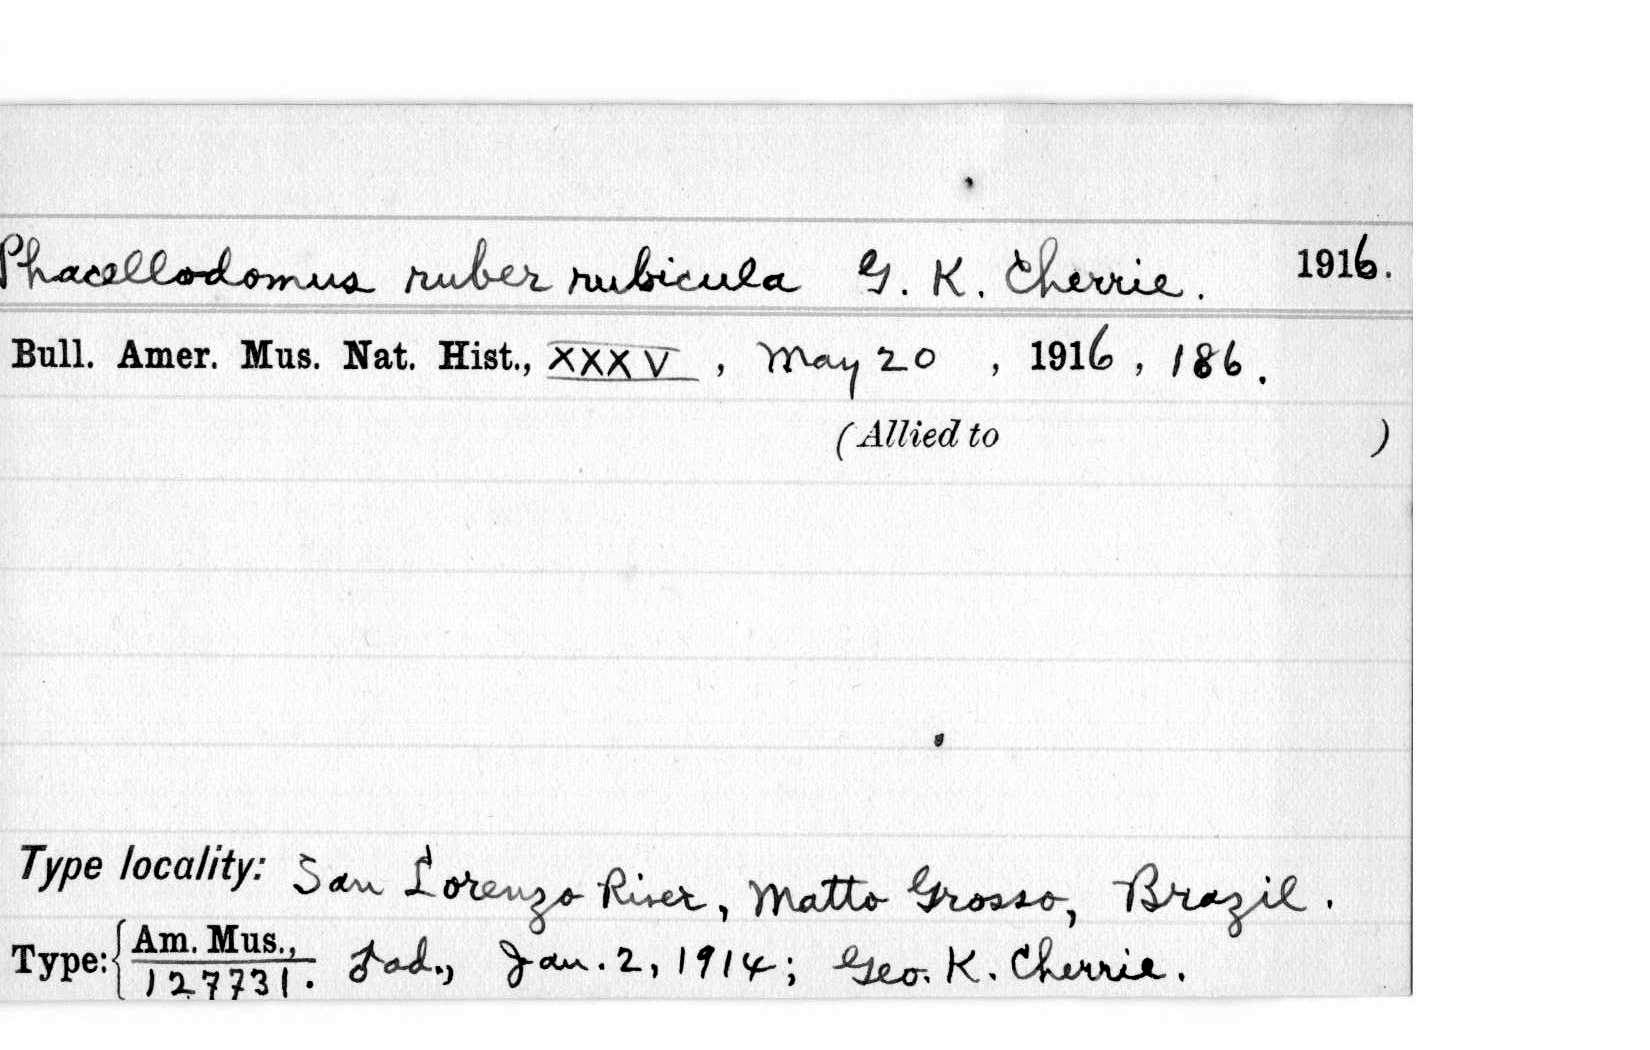 Phacellodomus ruber rubicula G. K. Cherrie. 1916.
Bull. Amer. Mus. Nat. Hist., XXXV, May 20, 1916, 186.
(Allied to )
Type locality: San Lorenzo River, Matto Grosso, Brazil.
Type: { Am. Mus., 127731. ♂ ad., Jan. 2, 1914; Geo. K. Cherrie.